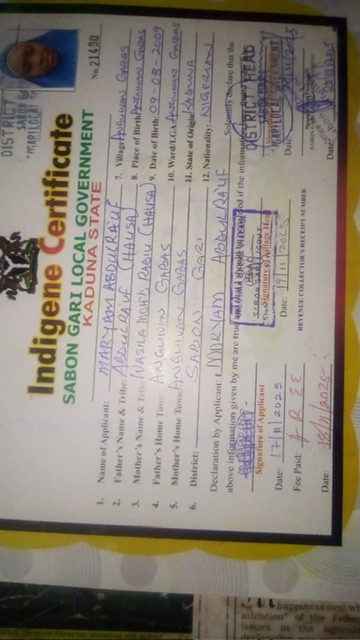 No. 21490
Indigene Certificate
SABON GARI LOCAL GOVERNMENT
KADUNA STATE
1. Name of Applicant: MARYAM ABDULRAUF
2. Father's Name & Tribe: ABDULRAUF (HAUSA)
3. Mother's Name & Tribe: WASILA MOHD RABIU (HAUSA)
4. Father's Home Town: ANGUWAN GABAS
5. Mother's Home Town: ANGUWAN GABAS
6. District: SABON GARI
7. Village: ANGUWAN GABAS
8. Place of Birth: ANGUWAN GABAS
9. Date of Birth: 09-08-2009
10. Ward/LGA: ANGUWAN GABAS
11. State of Origin: KADUNA
12. Nationality: NIGERIAN
Declaration by Applicant: I MARYAM ABDULRAUF declare that the
above information given by me are true and if the information
Signature of Applicant
Date: 17/11/2025
Signature of Village Head
Date: 19/11/2025
DISTRICT HEAD
Date:
Fee Paid: FREE
REVENUE COLLECTOR'S RECEIPT NUMBER
Date: 18/11/2025
DISTRICT
happiness over wh
of the Feder
issues in the